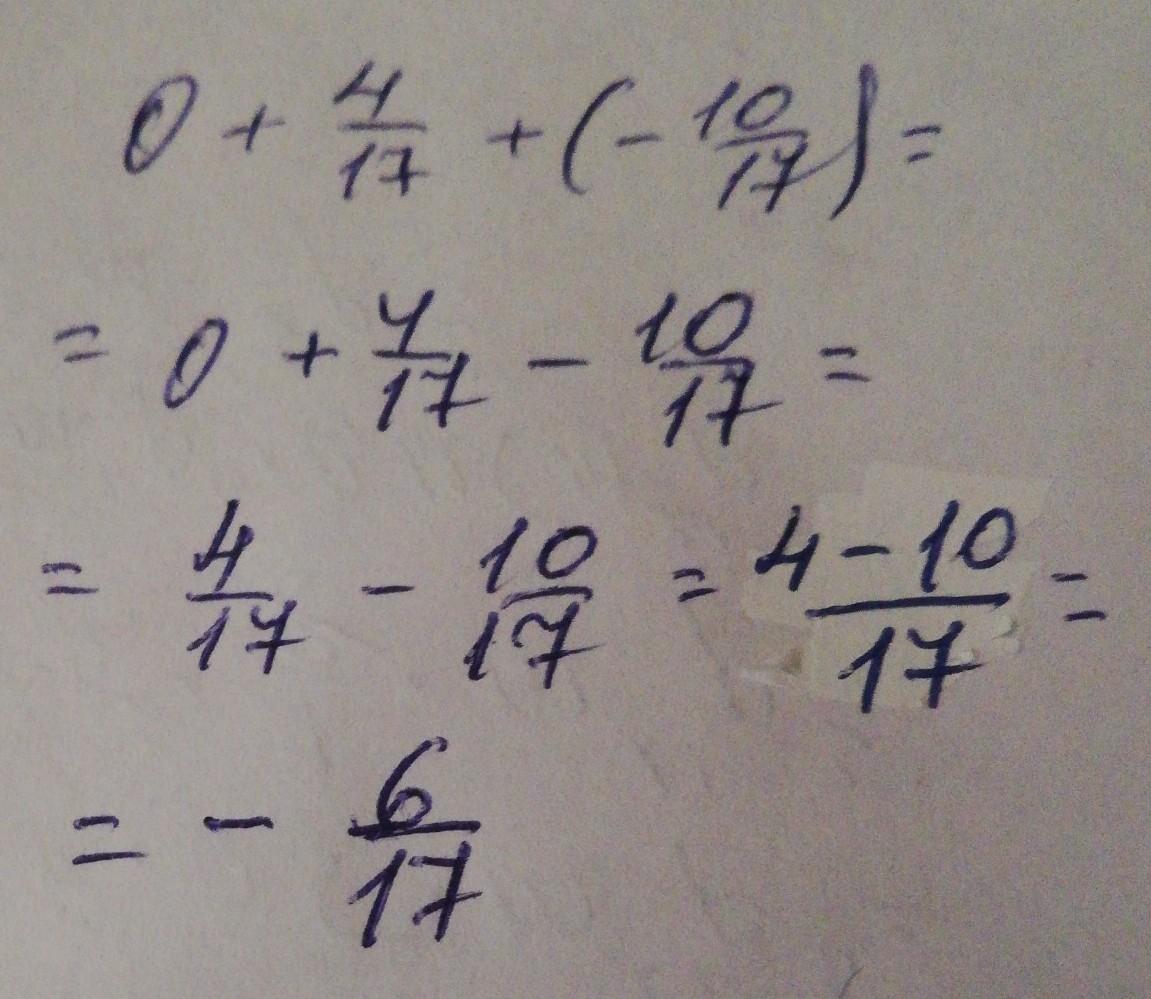 0 + 4/17 + (- 10/17) =
= 0 + 4/17 - 10/17 =
= 4/17 - 10/17 = (4 - 10)/17 =
= - 6/17